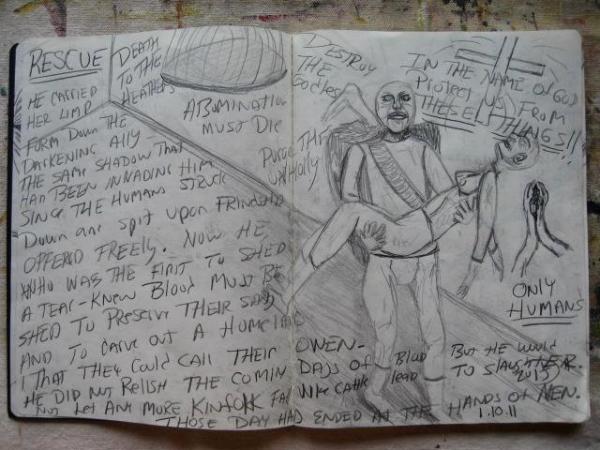 RESCUE
DEATH
TO THE
HEATHENS
ABOMINATION
MUST DIE
HE CARRIED
HER LIMP
FORM DOWN THE
DARKENING ALLY-
THE SAME SHADOW THAT
HAD BEEN INVADING HIM
SINCE THE HUMANS STRUCK
DOWN AND SPIT UPON FRIENDSHIP
OFFERED FREELY. NOW HE
WHO WAS THE FIRST TO SHED
A TEAR-KNEW BLOOD MUST BE
SHED TO PRESERVE THEIR
AND TO CARVE OUT A HOMELAND
THAT THEY COULD CALL THEIR OWEN-
HE DID NOT RELISH THE COMIN DAYS OF BLOOD BUT HE WOULD
NOT LET ANY MORE KINFOLK LEAD LIKE CATTLE TO SLAUGHTER.
THOSE DAY HAD ENDED AT THE HANDS OF MEN.
DESTROY
THE
GODLESS
PURGE THIS
UNHOLLY
IN THE NAME OF GOD
PROTECT US FROM
THESE THINGS!!
ONLY
HUMANS
1.10.11